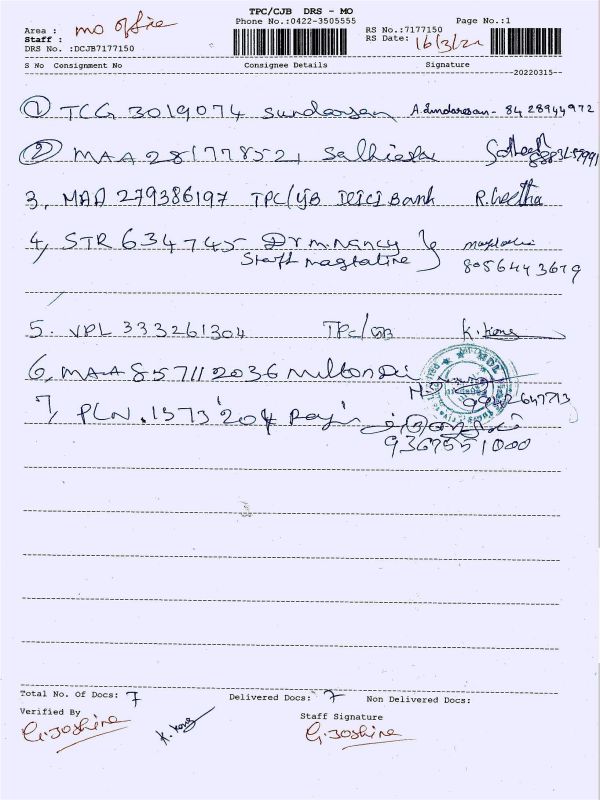 TPC/CJB DRS - MO
Area : mo office
Phone No.:0422-3505555
Page No.:1
Staff :
RS No.:7177150
DRS No. :DCJB7177150
RS Date: 16/3/22
S No Consignment No Consignee Details Signature
20220315
1 TCG 3019074 Sundaresan A.Sundaresan- 8428944972
2 MAA 281778521
3, MAA 279386197 TPC/CJB ICICI Bank R.Geetha
4, STR 634745 Dr m.nancy
Staff magtaline 8056443679
5. VPL 333261304 TPC/CJB K.Kong
6, MAA 857112036
7, PLN . 1573204
9367551000
Total No. Of Docs: 7 Delivered Docs: 7 Non Delivered Docs:
Verified By
Staff Signature
G.Joshina K.Kong G.Joshina